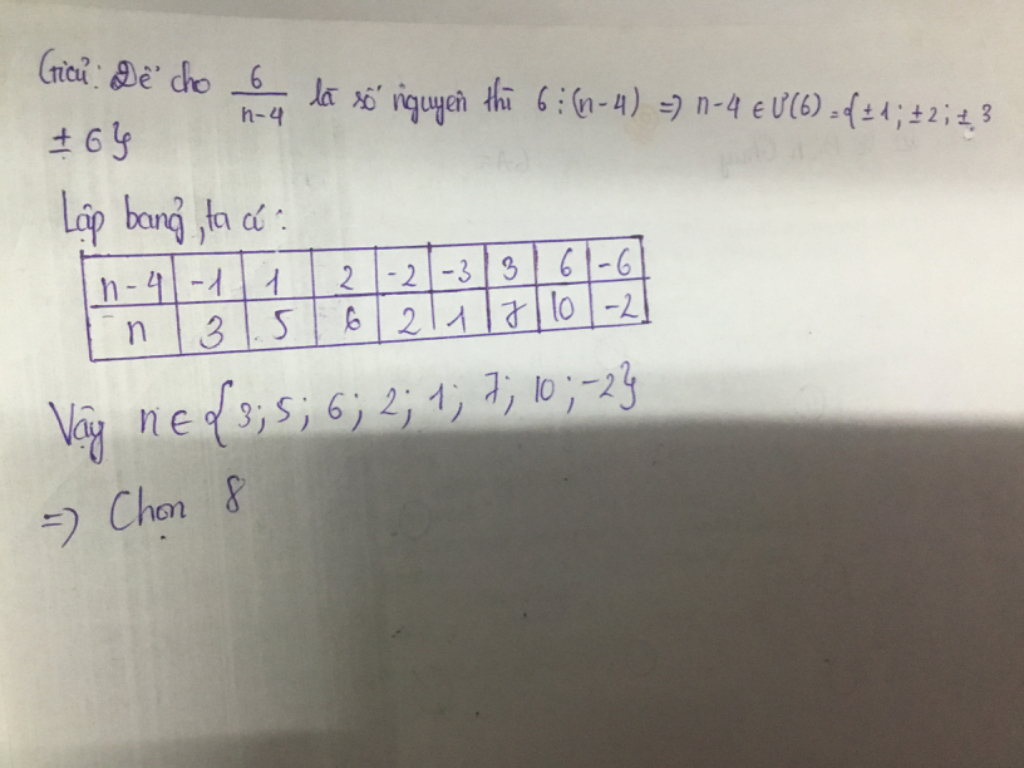 Giải: Để cho 6/(n-4) là số nguyên thì 6 ⋮ (n-4) => n-4 ∈ Ư(6) = {±1; ±2; ±3
±6}
Lập bảng, ta có:
n-4 -1 1 2 -2 -3 3 6 -6
n 3 5 6 2 1 7 10 -2
Vậy n ∈ {3; 5; 6; 2; 1; 7; 10; -2}
=> Chọn 8